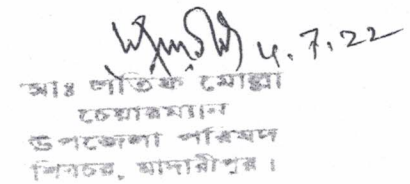 ৫.7.22
মোঃ লতিফ মোল্লা
চেয়ারম্যান
উপজেলা পরিষদ
শিবচর, মাদারীপুর।